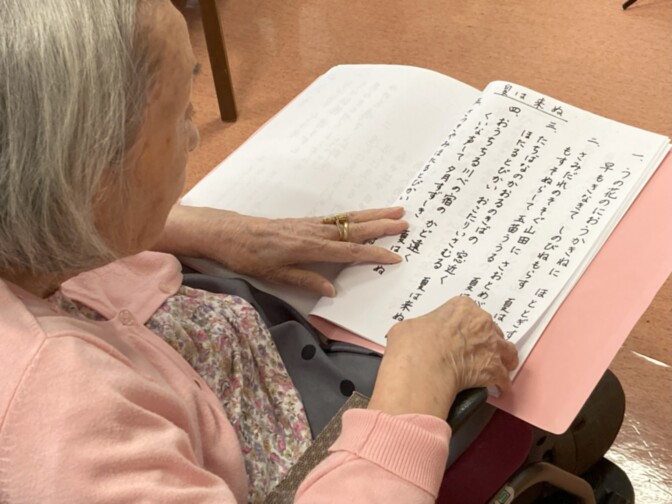 夏は来ぬ
一、うの花のにおうかきねに ほととぎす
早もきなきて しのびねもらす 夏は
二、さみだれのそそぐ山田に さおとめが
もすそぬらして 玉苗ううる 夏は
三、たちばなのかおるのきばの 窓近く
ほたるとびかい おこたりいさむる 夏は来ぬ
四、おうちちる川べの宿の かど遠く
くいな声して 夕月すずしき 夏は ぬ